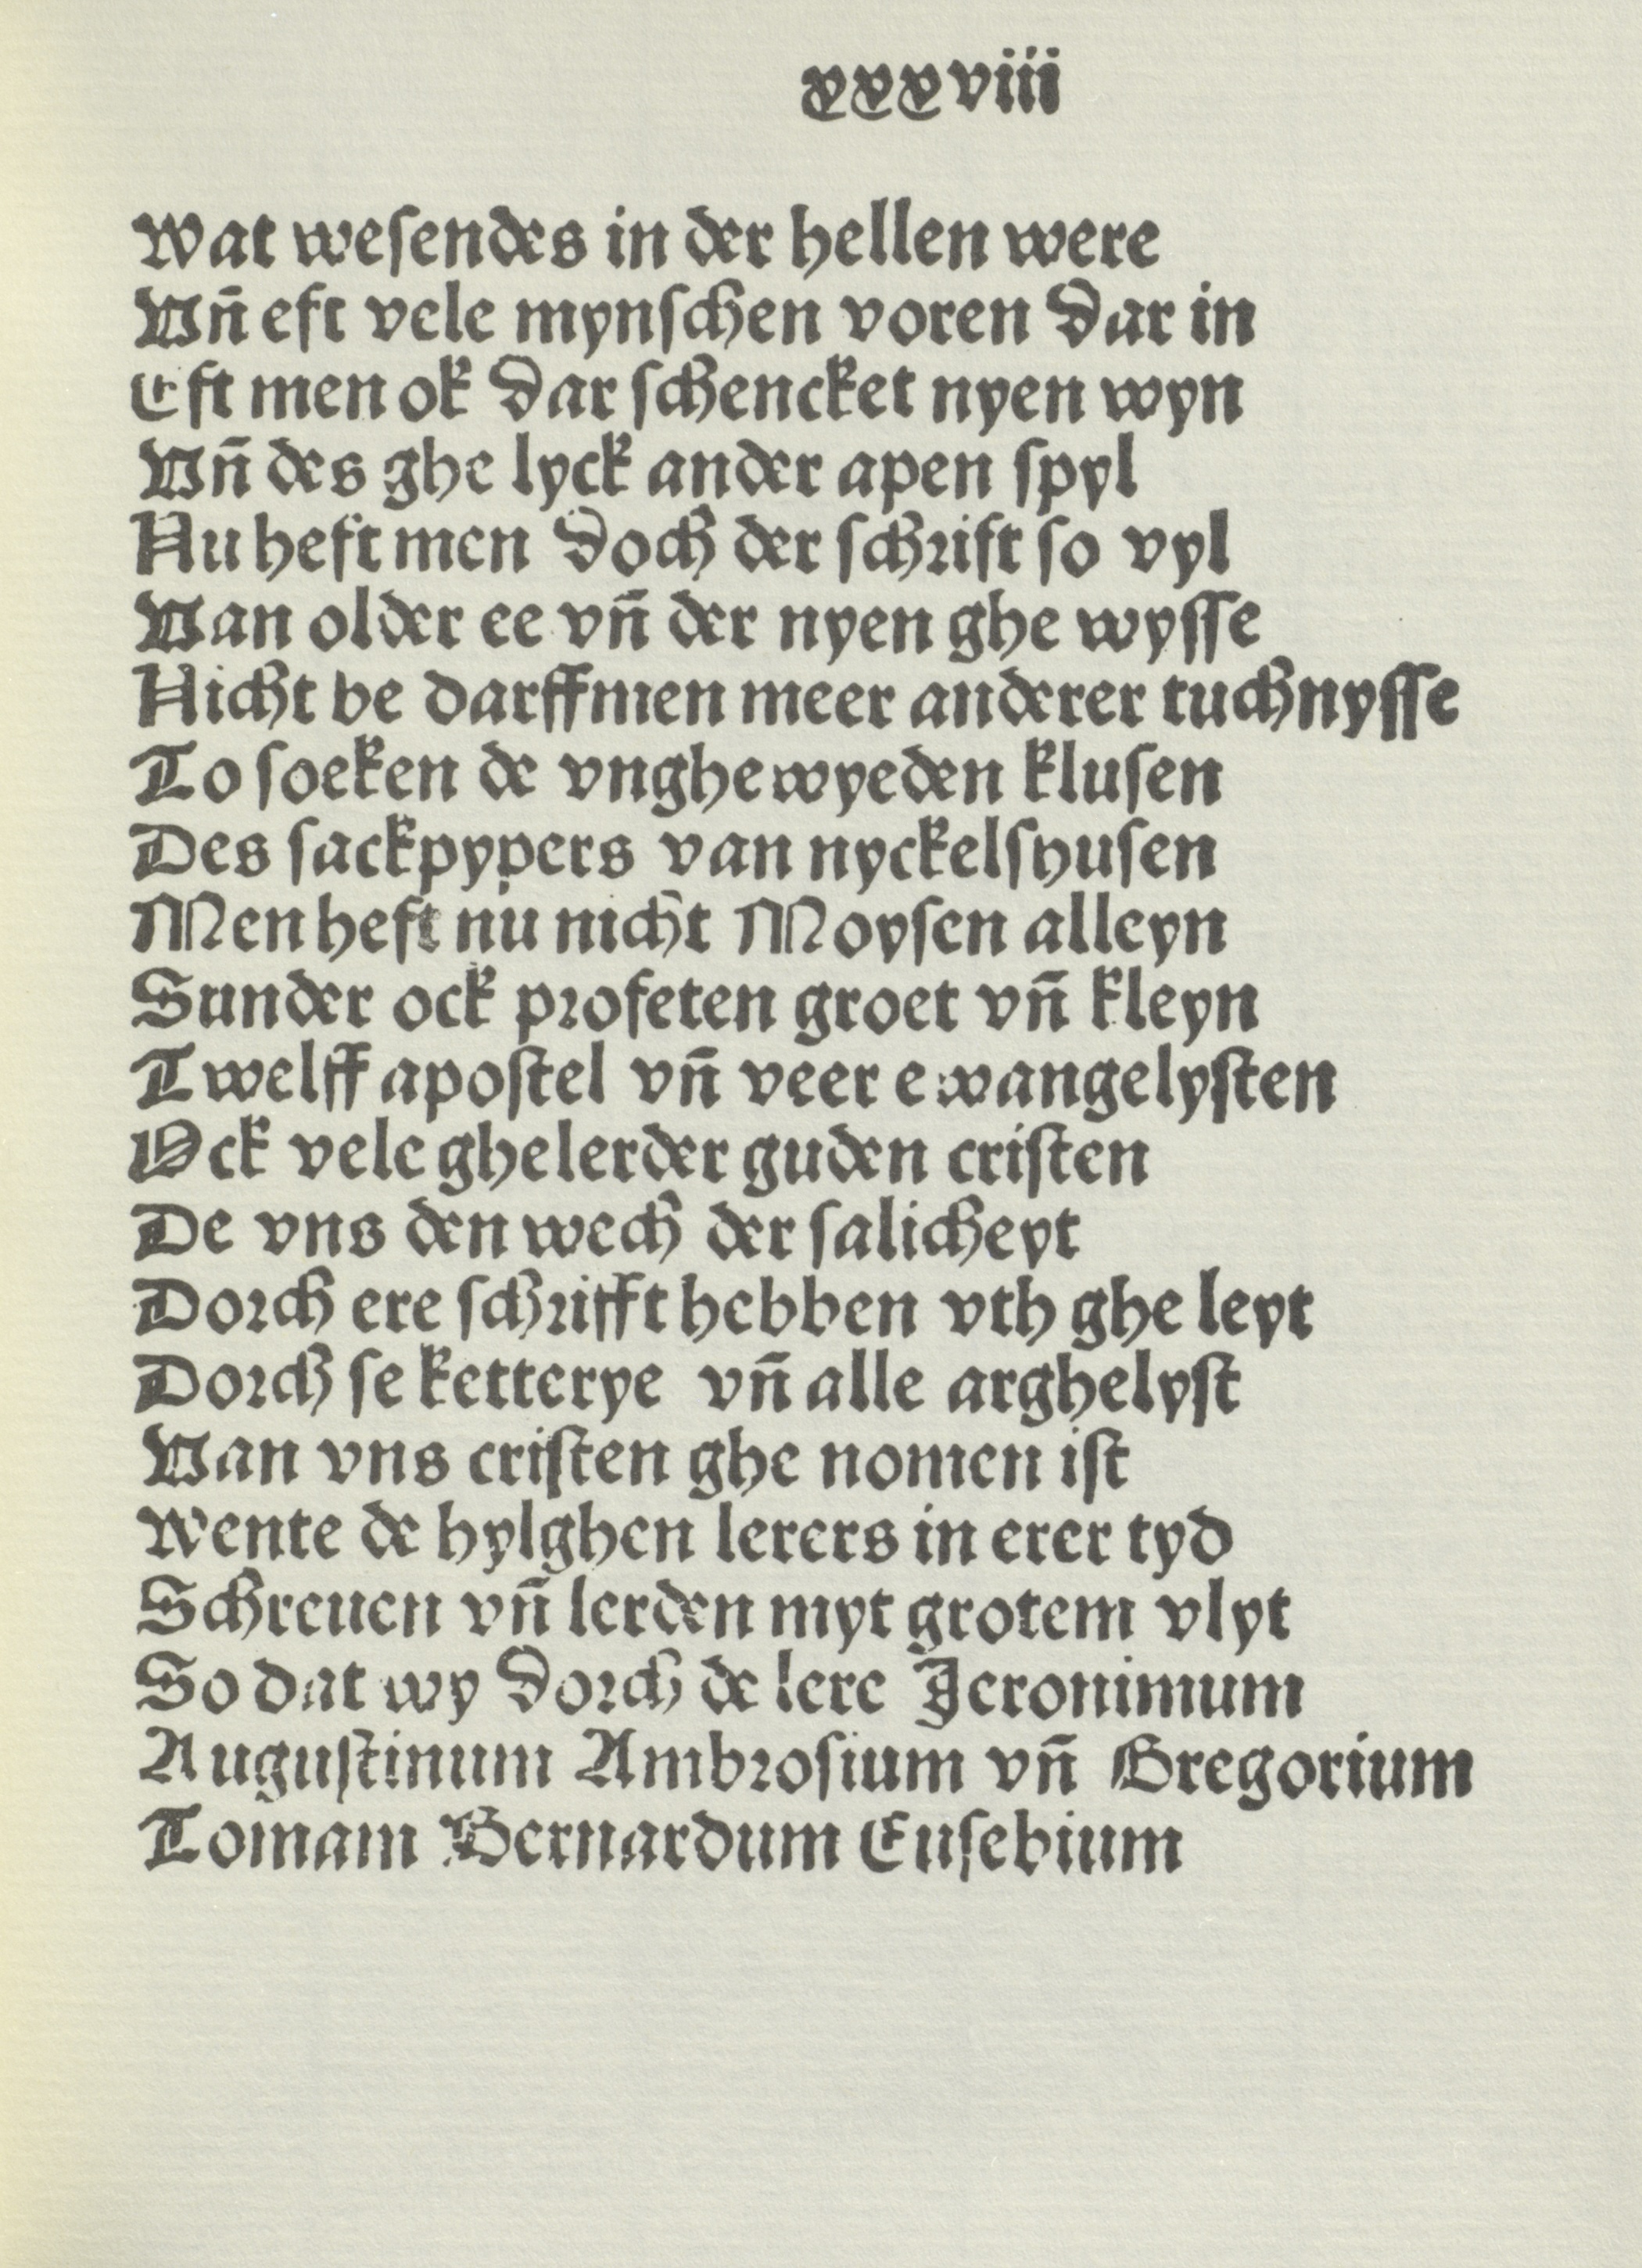 xxxviii
Wat wesendes in der hellen were
Vn̄ eft vele mynschen voren dar in
Eft men ok dar schencket nyen wyn
Vn̄ des ghe lyck ander apen spyl
Nu heft men doch der schrift so vyl
Van older ee vn̄ der nyen ghe wysse
Nicht be darff men meer anderer tuchnysse
To soeken de vnghe wyeden klusen
Des sackpypers van nyckelshusen
Men heft nu nicht Moysen alleyn
Sunder ock profeten groet vn̄ kleyn
Twelff apostel vn̄ veer ewangelysten
Ock vele ghelerder guden cristen
De vns den wech der salicheyt
Dorch ere schrifft hebben vth ghe leyt
Dorch se ketterye vn̄ alle arghelyst
Van vns cristen ghe nomen ist
Wente de hylghen lerers in erer tyd
Schreuen vn̄ lerden myt grotem vlyt
So dat wy dorch de lere Jeronimum
Augustinum Ambrosium vn̄ Gregorium
Tomam Bernardum Eusebium